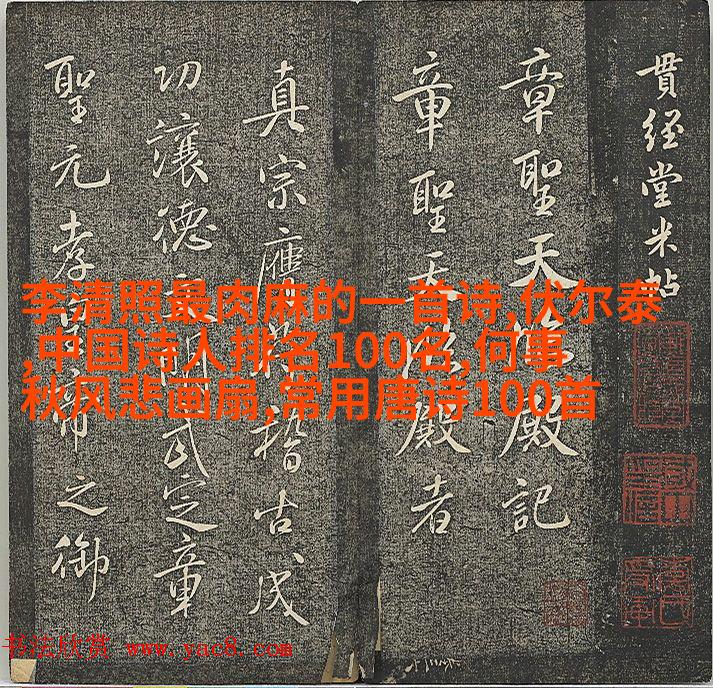 貫经堂米帖
章聖天殿記
章聖天殿者
真宗應稽古成
功讓德武定章
聖元孝之御
李清照最肉麻的一首诗,伏尔泰
,中国诗人排名100名,何事
秋风悲画扇,常用唐诗100首
书法欣赏 www.yac8.com